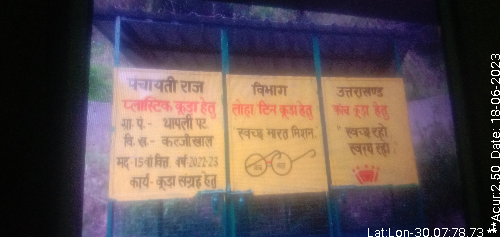 पंचायती राज
प्लास्टिक कूड़ा हेतु
ग्रा. पं.- थापली पर
वि. ख.- कल्जीखाल
मद्-15वां वित्त वर्ष 2022-23
कार्य- कूड़ा संग्रह हेतु
विभाग
लोहा/टिन कूड़ा हेतु
स्वच्छ भारत मिशन
उत्तराखण्ड
कांच कूड़ा हेतु
स्वच्छ रहो
स्वस्थ रहो
Lat:Lon-30.07:78.73
**Acur:2.50 Date: 18-06-2023